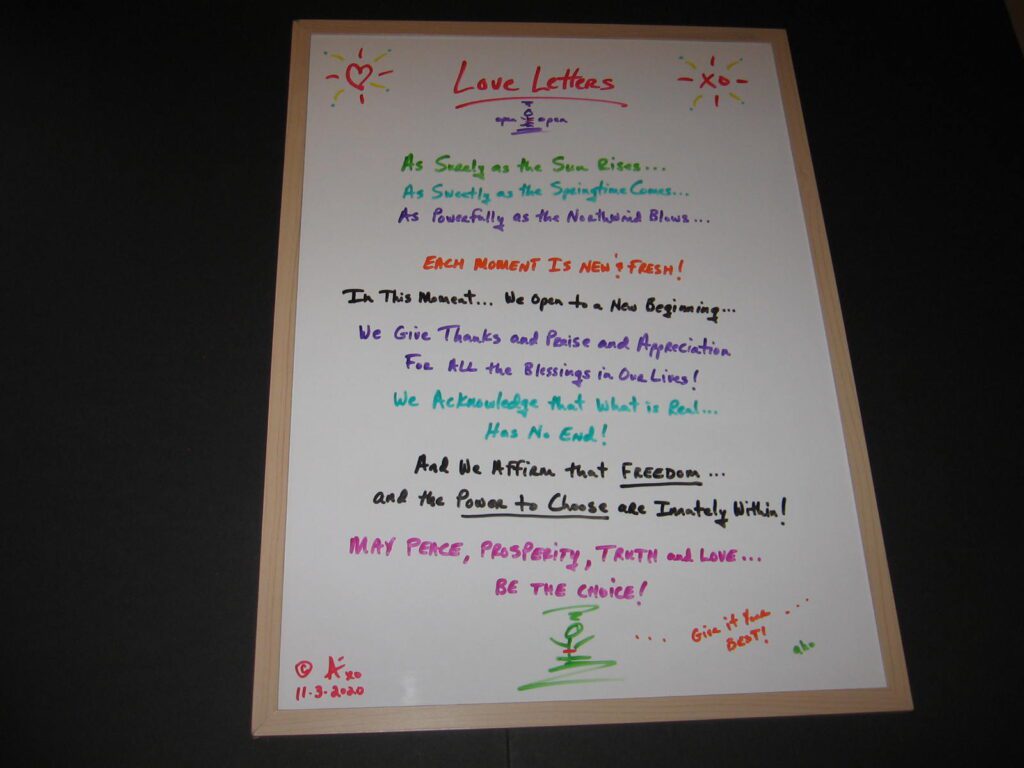 Love Letters
XO
open open
As Surely as the Sun Rises...
As Sweetly as the Springtime Comes...
As Powerfully as the Northwind Blows...
EACH MOMENT IS NEW & FRESH!
In This Moment... We Open to a New Beginning...
We Give Thanks and Praise and Appreciation
For ALL the Blessings in Our Lives!
We Acknowledge that What is Real...
Has No End!
And We Affirm that FREEDOM...
and the Power to Choose are Innately Within!
MAY PEACE, PROSPERITY, TRUTH and LOVE...
BE THE CHOICE!
... Give it Your ...
BEST!
aho
© A xo
11-3-2020